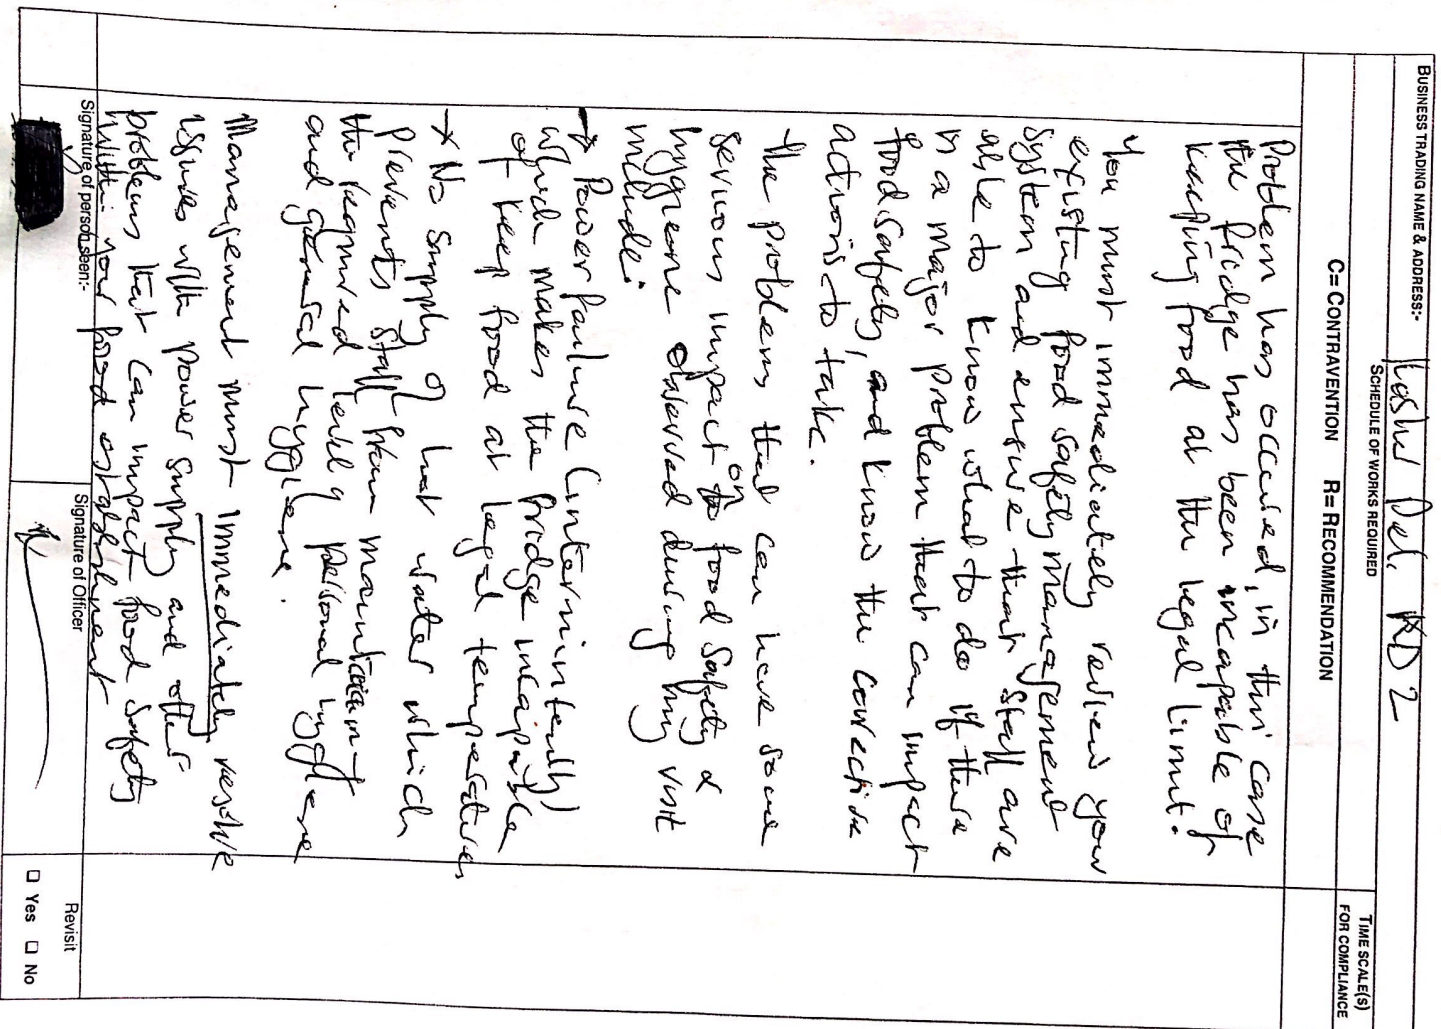 BUSINESS TRADING NAME & ADDRESS:- Kosher Deli RD2
SCHEDULE OF WORKS REQUIRED
C= CONTRAVENTION R= RECOMMENDATION
TIME SCALE(S)
FOR COMPLIANCE
Problem has occured, in this case
the fridge has been incapable of
keeping food at the legal limit.
You must immediately review your
existing food safety management
system and ensure that staff are
able to know what to do if there
is a major problem that can impact
food safety, and know the corrective
actions to take.
The problems that can have some
serious impact on food safety &
hygiene observed during my visit
include:
→ Power failure (intermintently)
which makes the fridge incapable
of keep food at legal temperatures
→ No supply of hot water which
prevents staff from maintain
the required level of personal hygiene
and general hygiene.
Management must immediately resolve
issues with power supply and other
problems that can impact food safety
within your food establishment
Signature of person seen:-
Signature of Officer
Revisit
☐ Yes ☐ No